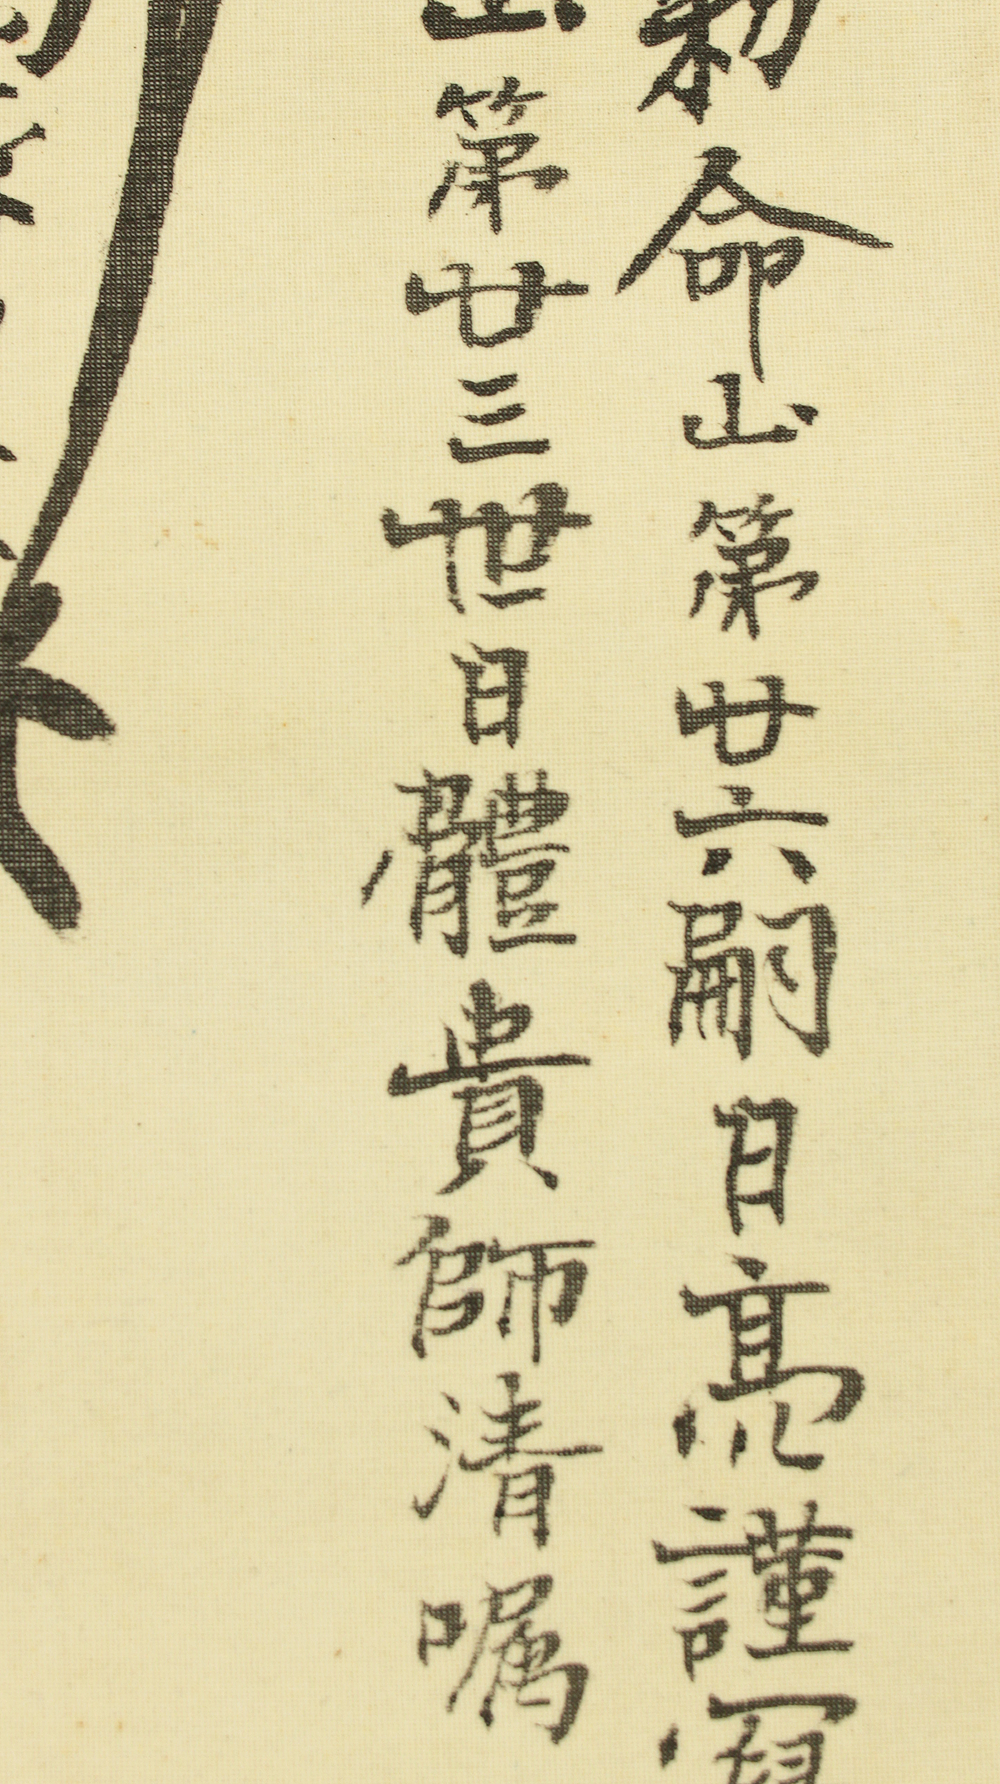 勅命山第廿六嗣日亮謹寫
第廿三世日體貴師清嘱